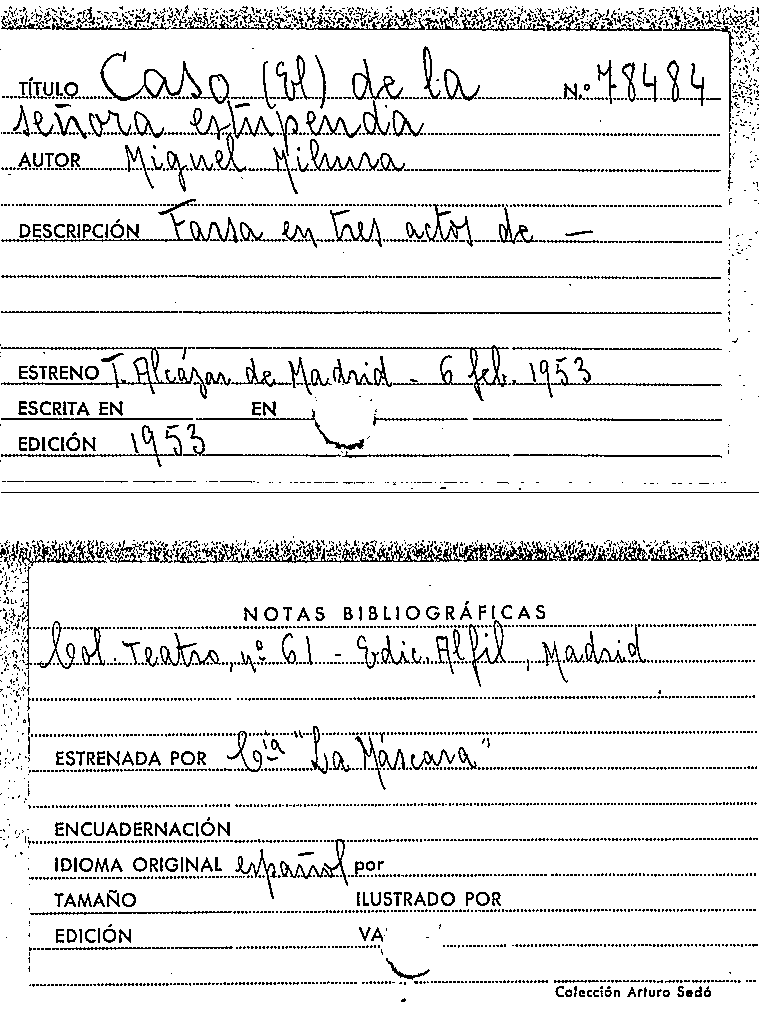 TÍTULO Caso (El) de la N.º 78484
señora estupenda
AUTOR Miguel Mihura
DESCRIPCIÓN Farsa en tres actos de —
ESTRENO T. Alcázar de Madrid - 6 feb. 1953
ESCRITA EN EN
EDICIÓN 1953
NOTAS BIBLIOGRÁFICAS
Col. Teatro, nº 61 - Edic. Alfil, Madrid
ESTRENADA POR Cía "La Máscara"
ENCUADERNACIÓN
IDIOMA ORIGINAL español por
TAMAÑO ILUSTRADO POR
EDICIÓN VA
Colección Arturo Sedó